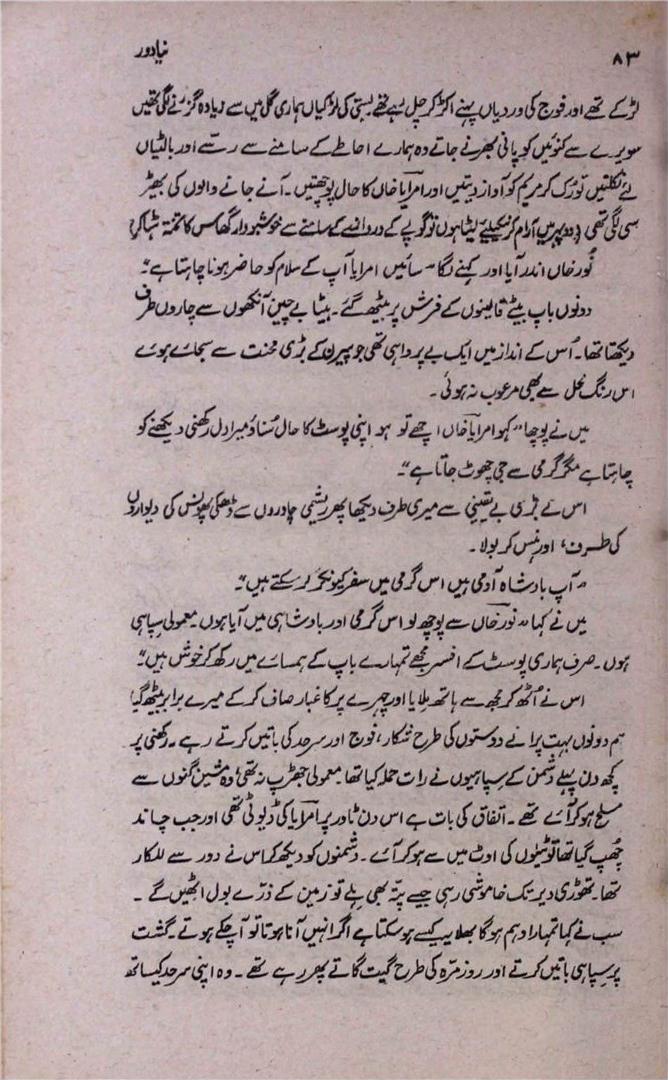 ۸۳ نیا دور
لڑکے تھے اور فوج کی وردیاں پہنے اکڑ کر چل رہے تھے بستی کی لڑکیاں ہماری گلی میں سے زیادہ گزرنے لگی تھیں
سویرے سے کنوئیں کو پانی بھرنے جاتے وہ ہمارے احاطے کے سامنے سے رسّے اور بالٹیاں
لئے نکلتیں تو رُک کر مریم کو آواز دیتیں اور امرایا خاں کا حال پوچھتیں۔ آنے جانے والوں کی بھیڑ
سی لگی تھی (دوپہر میں آرام کرنیکیلئے لیٹا ہوں تو گوپے کے دروازے کے سامنے سے خوشبودار گھاس کا تختہ ہٹا کر)
نُور خاں اندر آیا اور کہنے لگا "سائیں امرایا آپ کے سلام کو حاضر ہونا چاہتا ہے"۔
دونوں باپ بیٹے قالینوں کے فرش پر بیٹھ گئے۔ بیٹا بے چین آنکھوں سے چاروں طرف
دیکھتا تھا۔ اُس کے انداز میں ایک بے پرواہی تھی جو پیراں کے بڑی محنت سے سجائے ہوئے
اس رنگ محل سے بھی مرعوب نہ ہوئی۔
میں نے پوچھا "کہو امرایا خاں اچھے تو ہو اپنی پوسٹ کا حال سُناؤ میرا دل رکھنی دیکھنے کو
چاہتا ہے مگر گرمی سے جی چھوٹ جاتا ہے"۔
اس نے بڑی بے یقینی سے میری طرف دیکھا پھر ریشمی چادروں سے ڈھکی پھونس کی دیواروں
کی طرف، اور ہنس کر بولا۔
"آپ بادشاہ آدمی ہیں اس گرمی میں سفر کیونکر کر سکتے ہیں"۔
میں نے کہا "نور خاں سے پوچھ لو اس گرمی اور بادشاہی میں آیا ہوں۔ معمولی سپاہی
ہوں۔ صرف ہماری پوسٹ کے افسر مجھے تمہارے باپ کے ہمسائے میں رکھ کر خوش ہیں"۔
اس نے اُٹھ کر مجھ سے ہاتھ ملایا اور چہرے پر کا غبار صاف کر کے میرے برابر بیٹھ گیا
ہم دونوں بہت پرانے دوستوں کی طرح شکار، فوج اور سرحد کی باتیں کرتے رہے۔ رکھنی پر
کچھ دن پہلے دشمن کے سپاہیوں نے رات حملہ کیا تھا۔ معمولی جھڑپ نہ تھی وہ مشین گنوں سے
مسلح ہو کر آئے تھے۔ اتفاق کی بات ہے اس دن ٹاور پر امرایا کی ڈیوٹی تھی اور جب چاند
چُھپ گیا تھا تو ٹیلوں کی اوٹ میں سے ہو کر آئے۔ دشمنوں کو دیکھ کر اس نے دور سے للکارا
تھا۔ تھوڑی دیر تک خاموشی رہی جیسے پتّہ بھی ہلے تو زمین کے ذرّے بول اٹھیں گے۔
سب نے کہا تمہارا وہم ہوگا بھلا یہ کیسے ہو سکتا ہے اگر انہیں آنا ہوتا تو آ چکے ہوتے۔ گشت
پر سپاہی باتیں کرتے اور روز مرّہ کی طرح گیت گاتے پھر رہے تھے۔ وہ اپنی سرحد کیساتھ